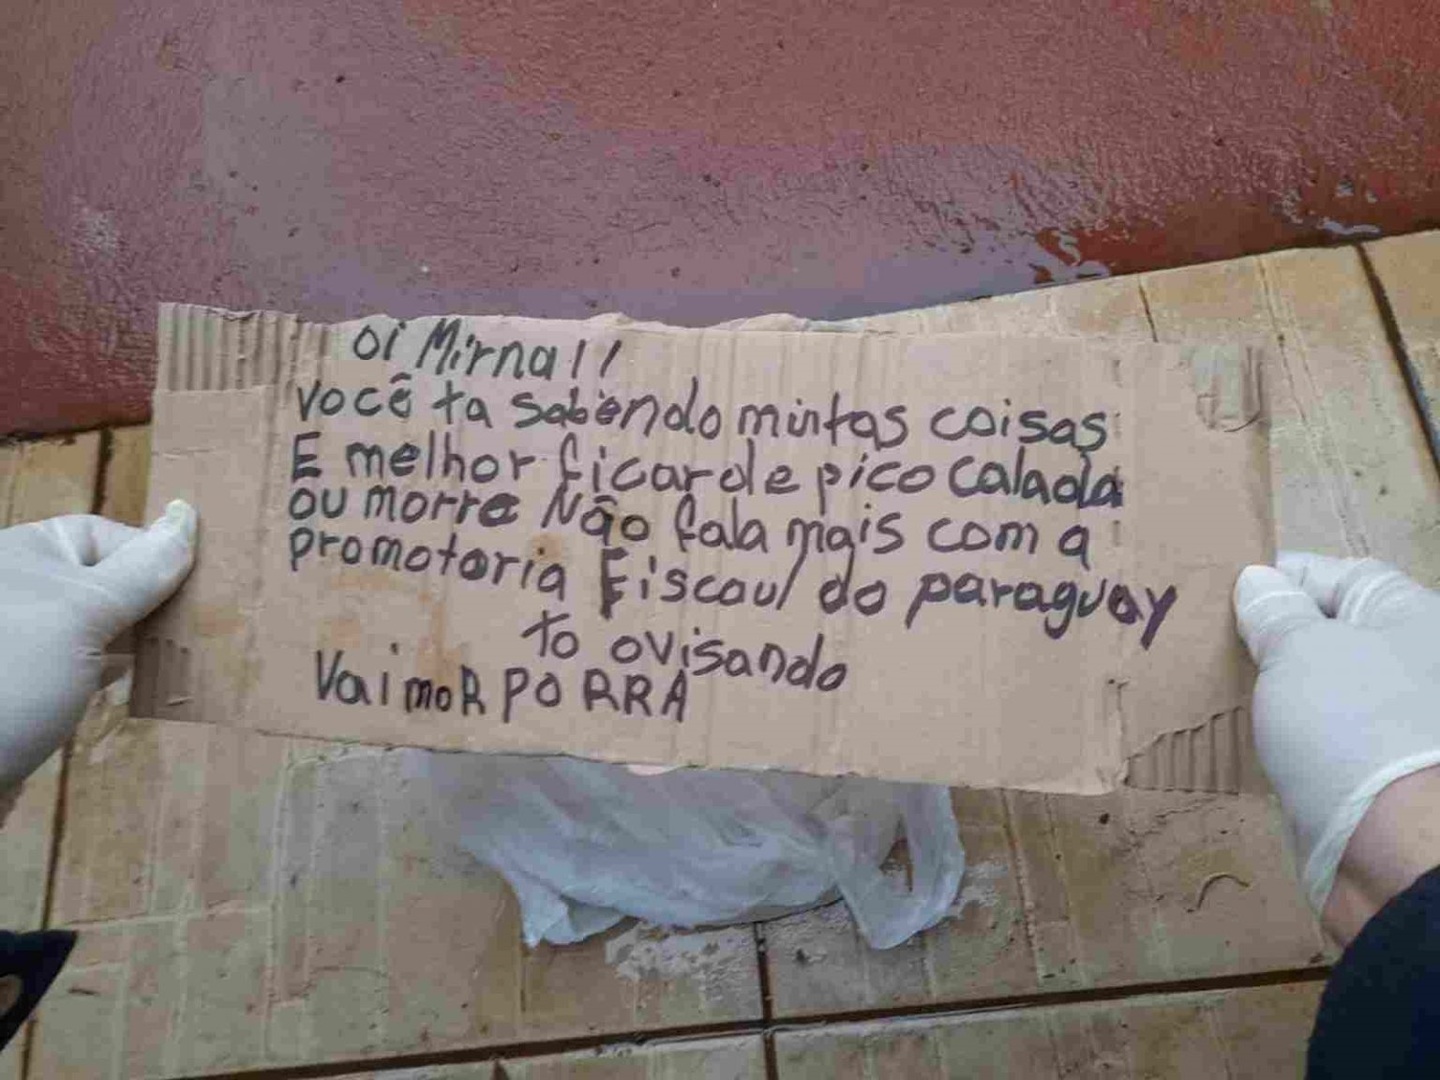 oi Mirna!!
você ta sabendo muitas coisas
E melhor ficar de pico calada
ou morre Não fala mais com a
promotoria Fiscaul do paraguay
to avisando
Vai moR PORRA